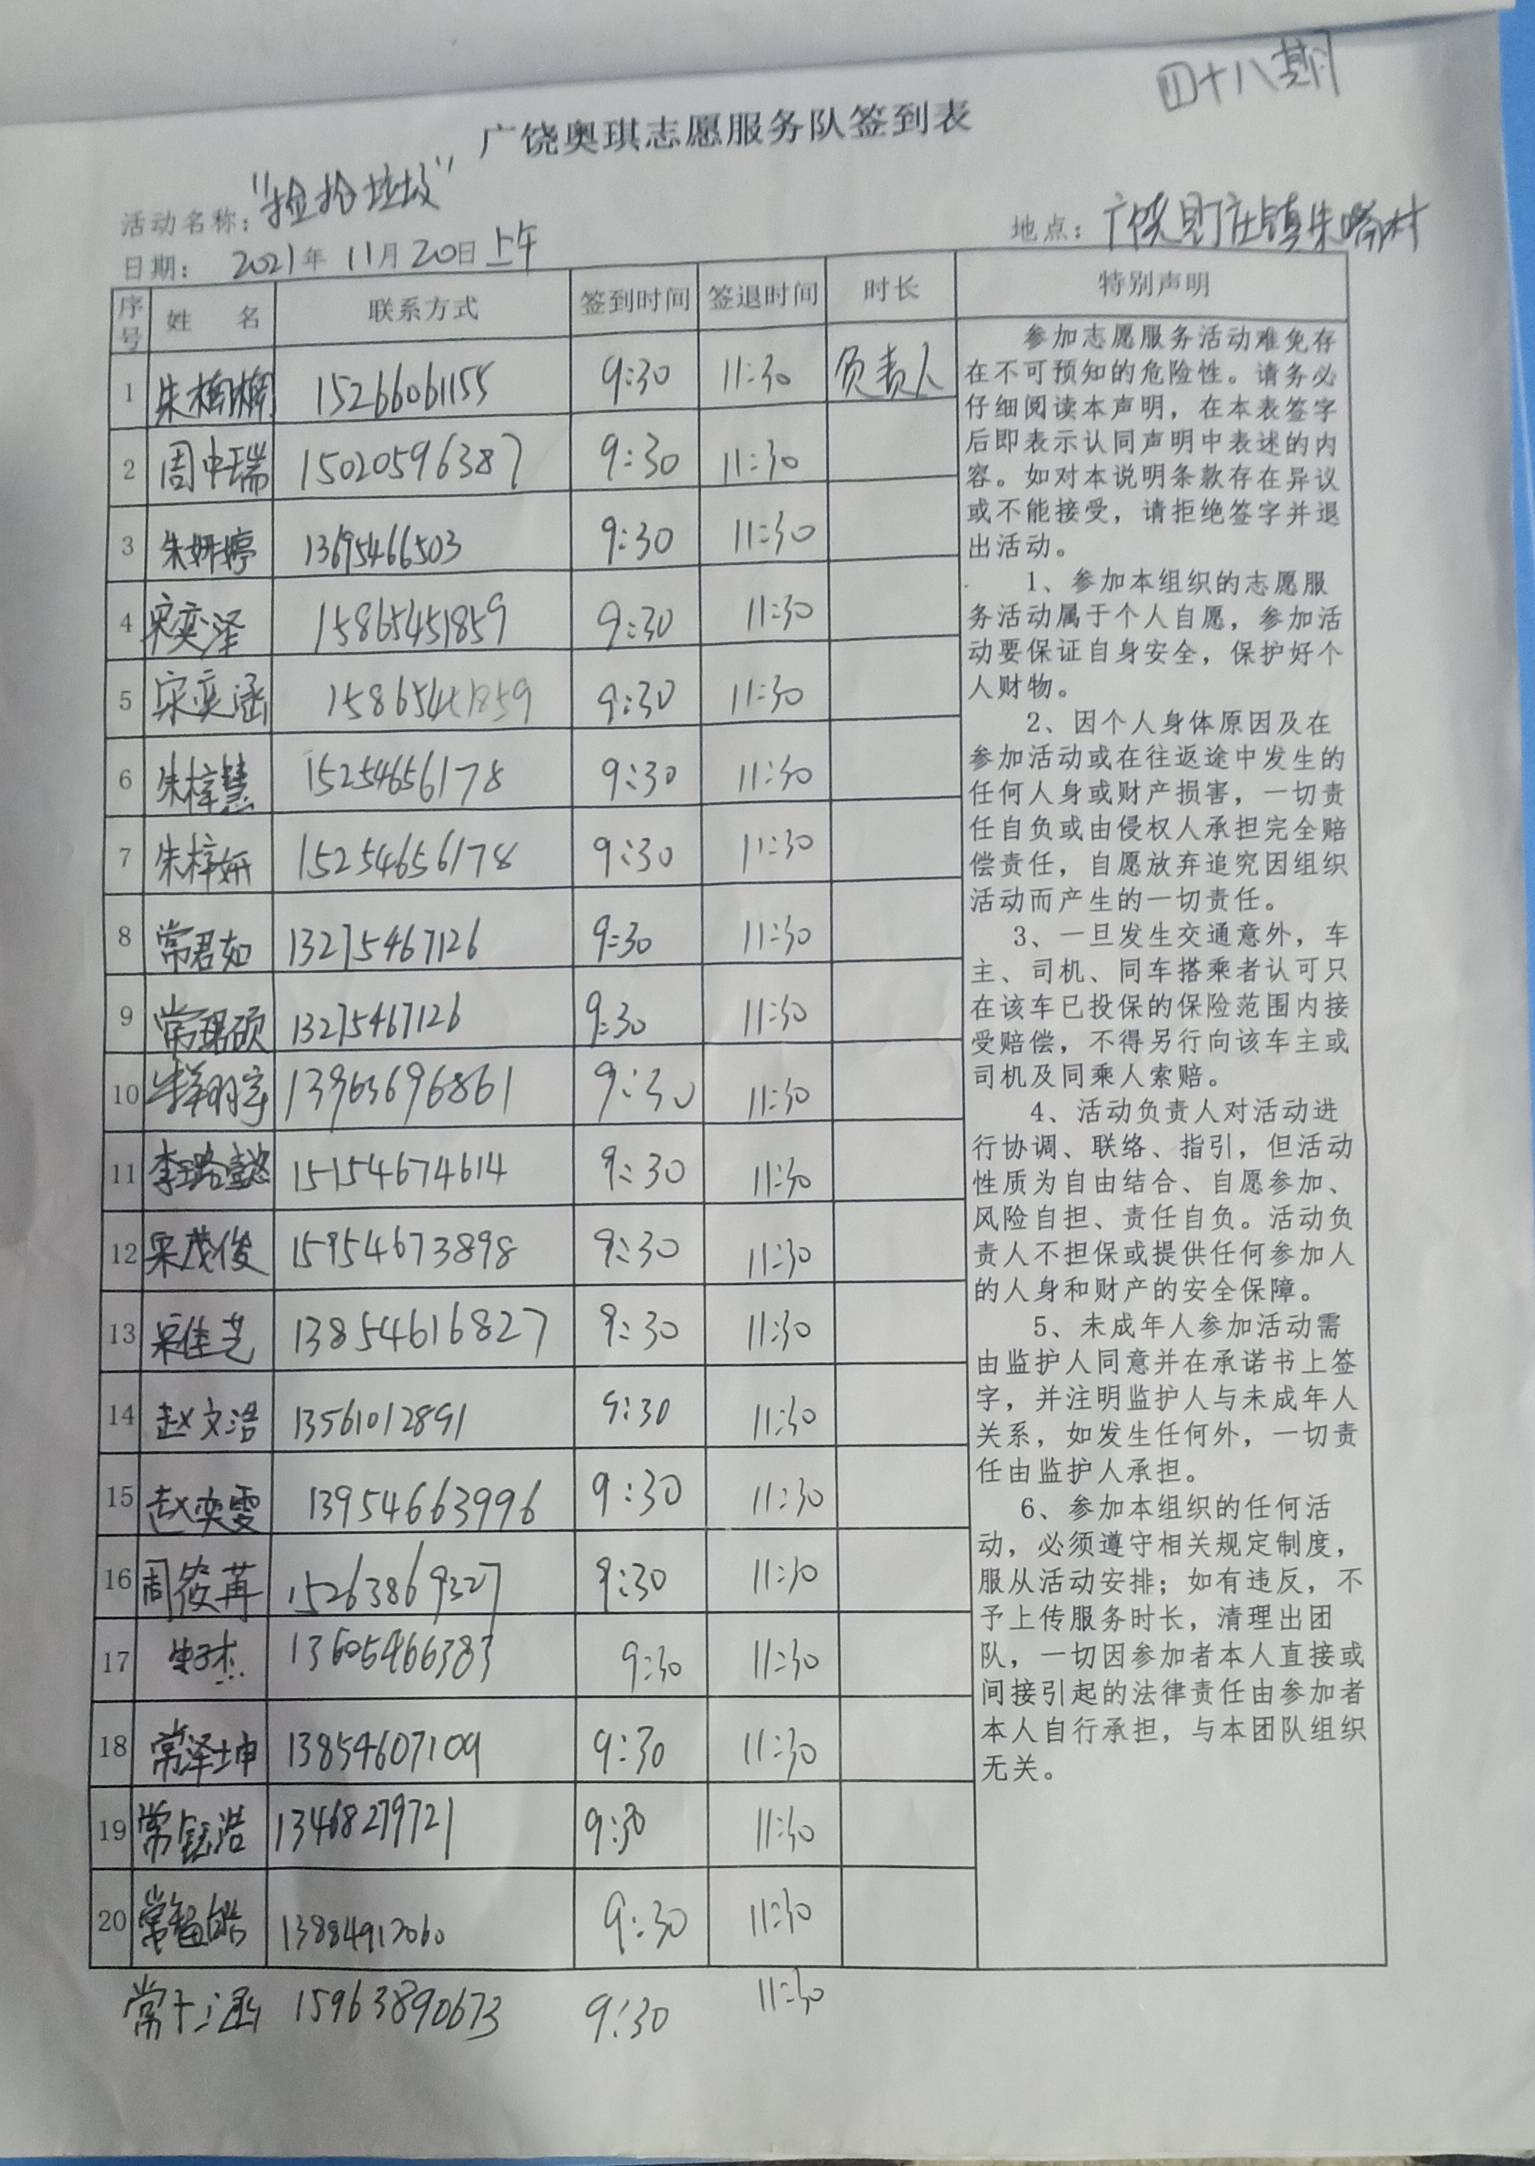 四十八期
广饶奥琪志愿服务队签到表
活动名称：“捡拾垃圾”
地点：广饶县丁庄镇朱嗜村
日期： 2021年 11月 20日上午
序号 姓 名 联系方式 签到时间 签退时间 时长 特别声明
1 朱梅梅 15266061155 9:30 11:30 负责人
2 周中瑞 15020596387 9:30 11:30
3 朱妍婷 13695466503 9:30 11:30
4 宋奕泽 15865451859 9:30 11:30
5 宋奕涵 15865451859 9:30 11:30
6 朱梓慧 15254656178 9:30 11:30
7 朱梓妍 15254656178 9:30 11:30
8 常君如 13275467126 9:30 11:30
9 常珺硕 13275467126 9:30 11:30
10 13963696861 9:30 11:30
11 李璐懿 15154674614 9:30 11:30
12 宋茂俊 15954673898 9:30 11:30
13 宋佳艺 13854616827 9:30 11:30
14 赵文浩 13561012891 9:30 11:30
15 赵奕雯 13954663996 9:30 11:30
16 周筱苒 15263869327 9:30 11:30
17 朱子杰 13605466383 9:30 11:30
18 常泽坤 13854607109 9:30 11:30
19 常钰浩 13468279721 9:30 11:30
20 常智皓 13884912060 9:30 11:30
常十涵 15963890673 9:30 11:30
参加志愿服务活动难免存
在不可预知的危险性。请务必
仔细阅读本声明，在本表签字
后即表示认同声明中表述的内
容。如对本说明条款存在异议
或不能接受，请拒绝签字并退
出活动。
1、参加本组织的志愿服
务活动属于个人自愿，参加活
动要保证自身安全，保护好个
人财物。
2、因个人身体原因及在
参加活动或在往返途中发生的
任何人身或财产损害，一切责
任自负或由侵权人承担完全赔
偿责任，自愿放弃追究因组织
活动而产生的一切责任。
3、一旦发生交通意外，车
主、司机、同车搭乘者认可只
在该车已投保的保险范围内接
受赔偿，不得另行向该车主或
司机及同乘人索赔。
4、活动负责人对活动进
行协调、联络、指引，但活动
性质为自由结合、自愿参加、
风险自担、责任自负。活动负
责人不担保或提供任何参加人
的人身和财产的安全保障。
5、未成年人参加活动需
由监护人同意并在承诺书上签
字，并注明监护人与未成年人
关系，如发生任何外，一切责
任由监护人承担。
6、参加本组织的任何活
动，必须遵守相关规定制度，
服从活动安排；如有违反，不
予上传服务时长，清理出团
队，一切因参加者本人直接或
间接引起的法律责任由参加者
本人自行承担，与本团队组织
无关。